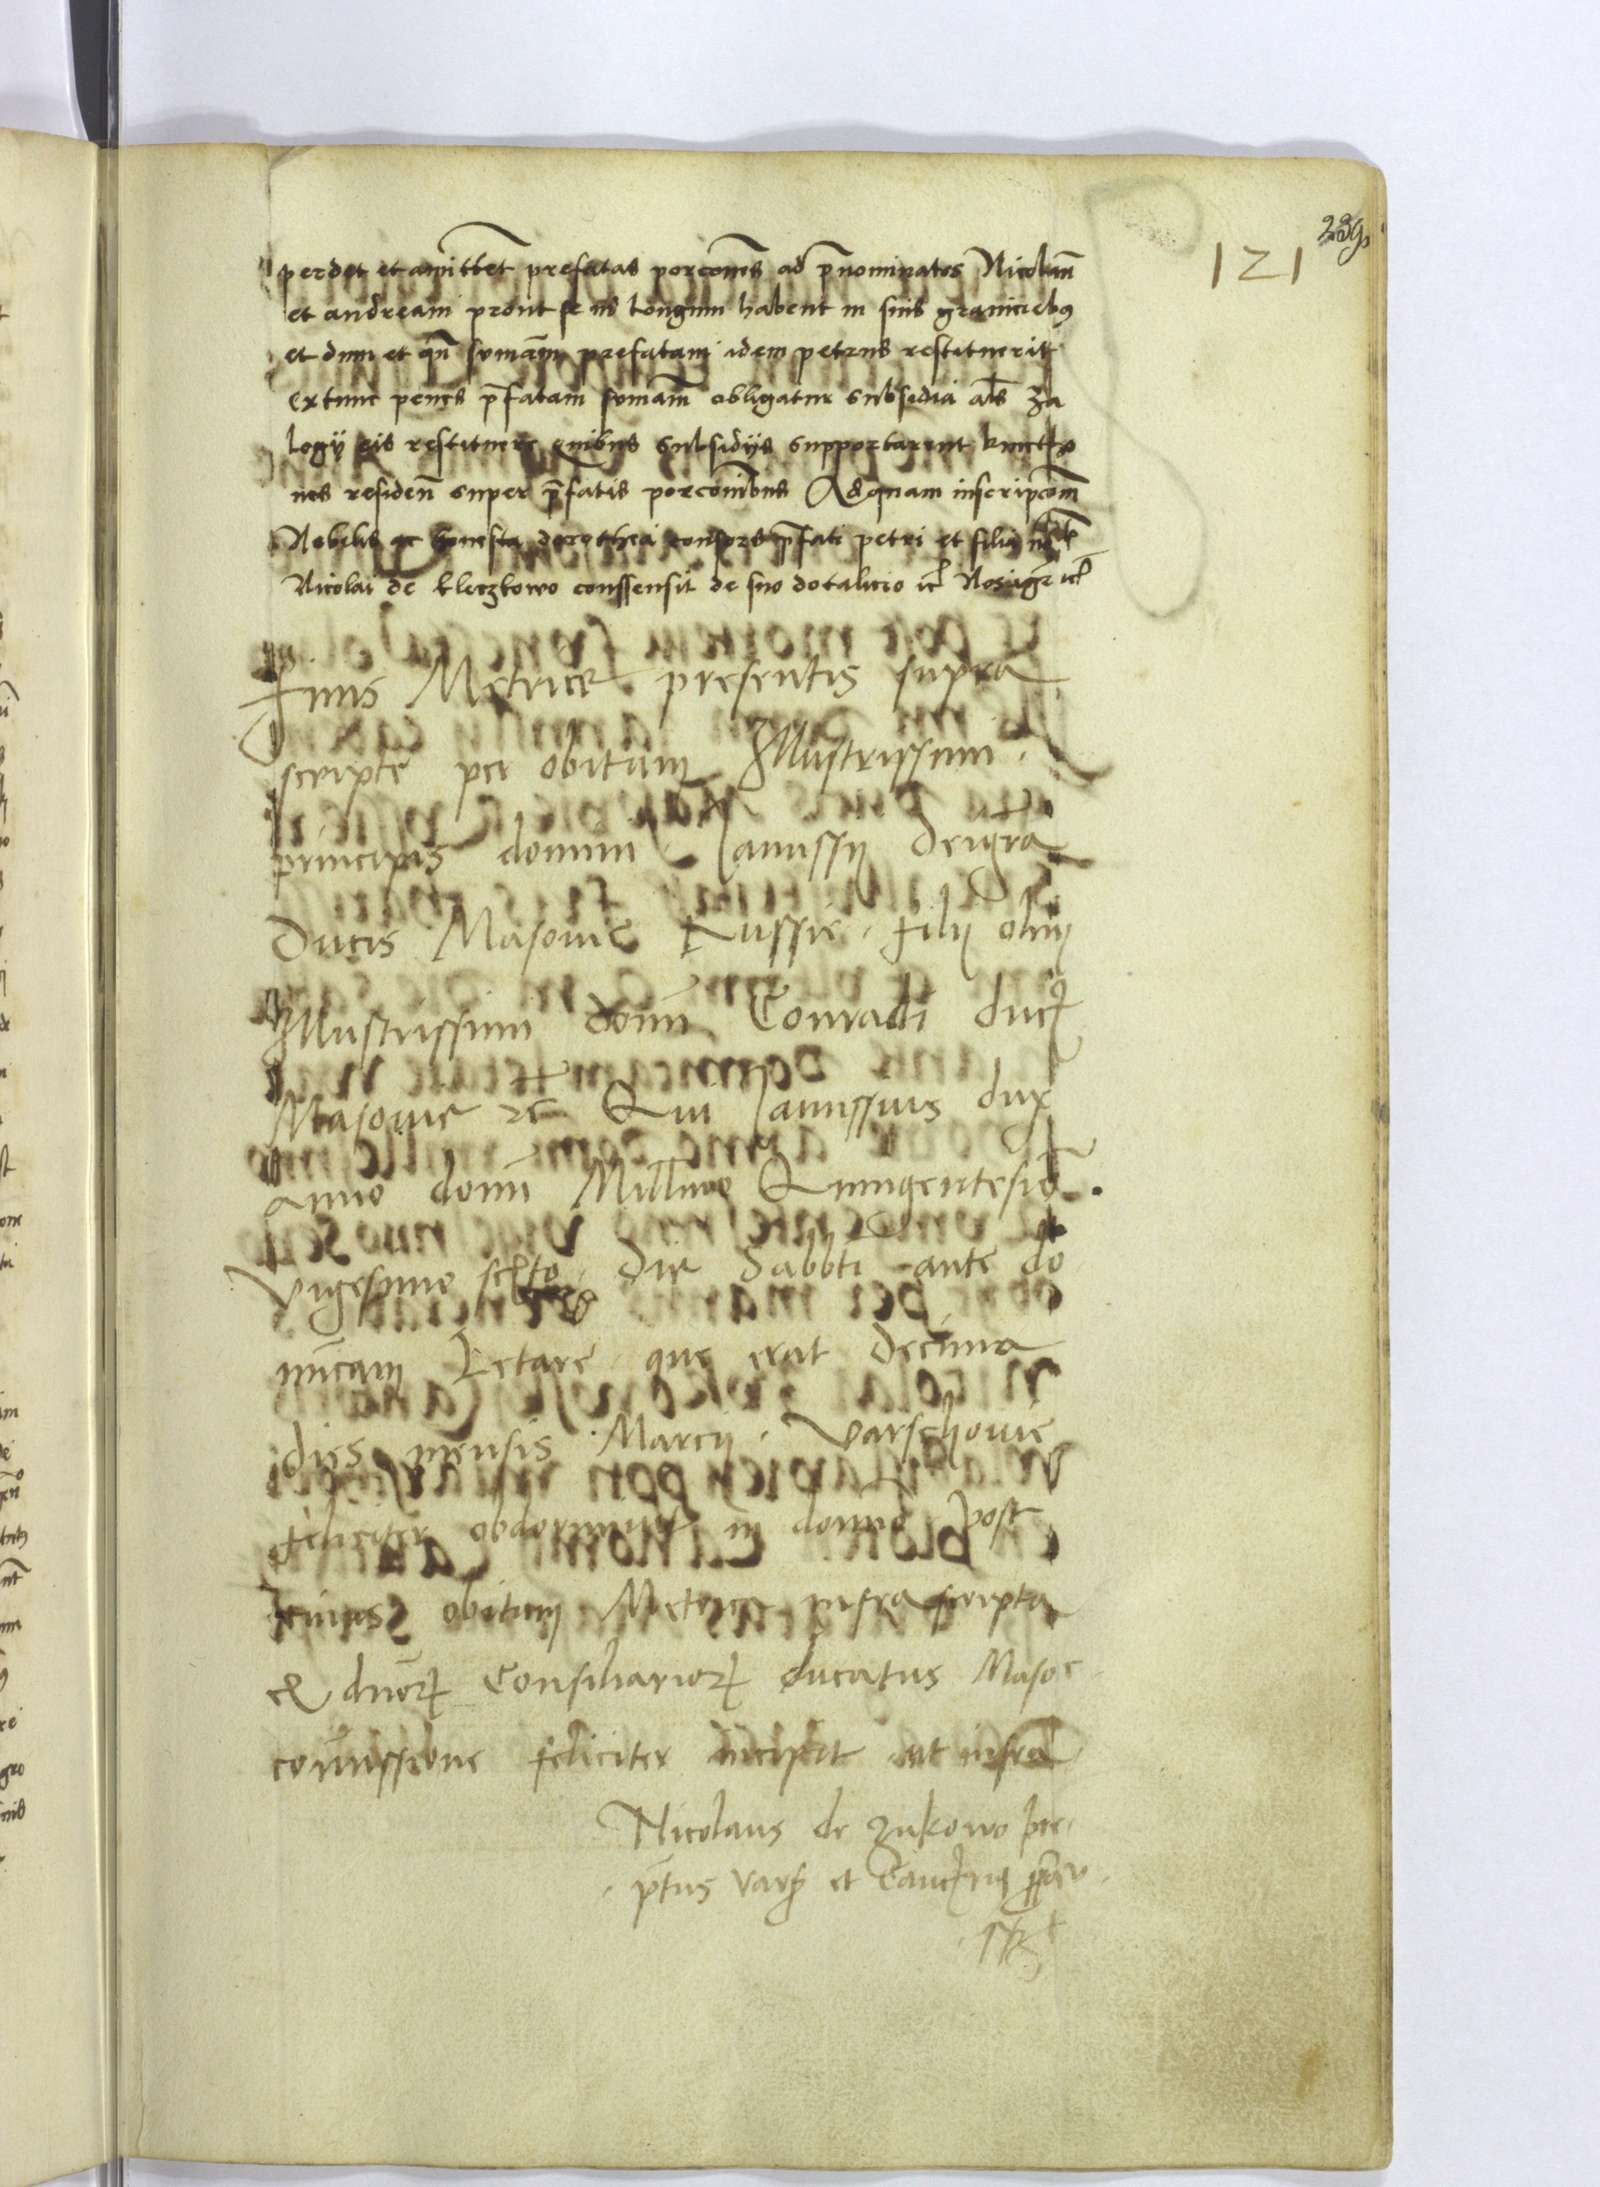 239
121
perdet et amittet prefatas porcones ad p̄nominatos Nicolaū
et andream prout se in longum habent in suis graniciebus
et dum et qn̄ sumam̄ prefatam idem petrus restituerit
extunc penes p̄fatam sumam̄ obligatur subsidia al̄s za
logij eis restituere quibus subsidijs supportarent kmetho
nes residen̄ super p̄fatis porconibus Ad quam inscripcom̄
Nobilis ac honesta dorothea consors p̄fati petri et filia
Nicolai de kleczkowo conssensit de suo dotalicio
Finis Metrice presentis supra
scripte per obitum Illustrissimi
principis domini Janussij dei gra
Ducis Masovie Russie filij olim
Illustrissimi domi Conradi duc
Masovie zc̄ Qui Janussius dux
anno domi Millimo Quingentesio
vigesimo sexto die Sabbti ante do
mīcam Letare que erat decima
dies mensis Marcij Varschovie
feliciter obdormivit in domino post
cuius obitum Metrica infrascripta
ex dnor Consiliarior ducatus Maso
comissione feliciter incipit ut infra
Nicolaus de zukowo pre
ptus vars et Canc